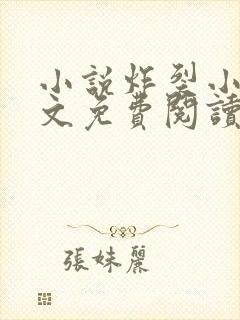 小說炸裂小
文免費閱讀
張妹麗